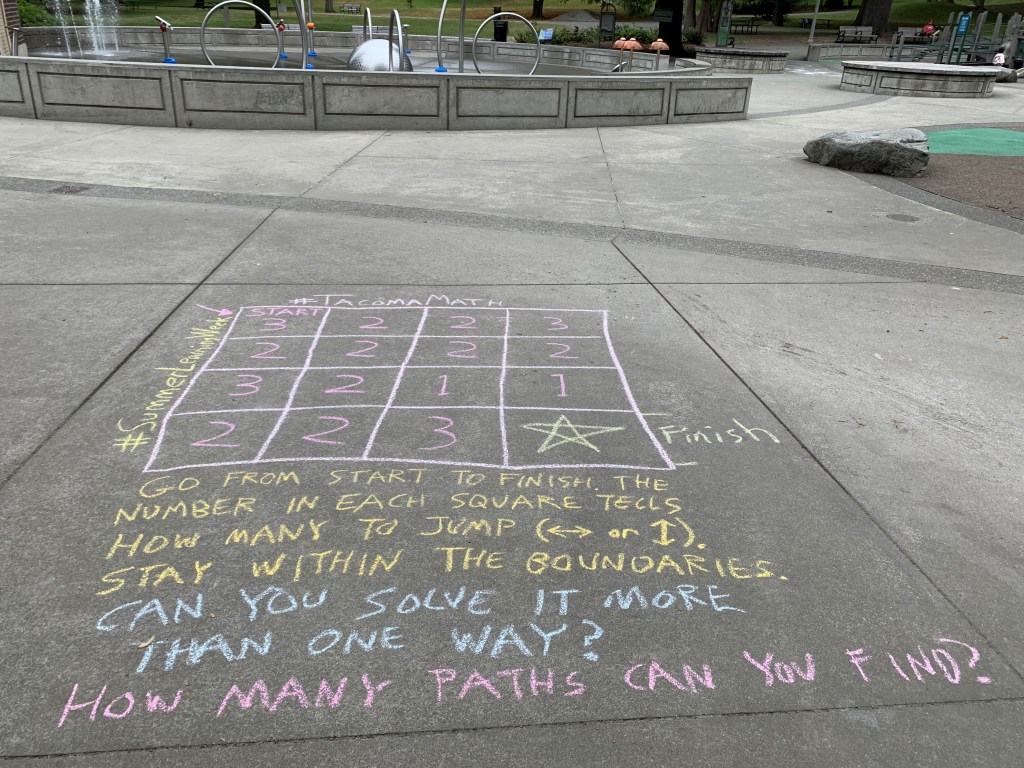 #TacomaMath
#SummerLearningWeek
START
3 2 2 3
2 2 2 2
3 2 1 1
2 2 3
Finish
GO FROM START TO FINISH. THE
NUMBER IN EACH SQUARE TELLS
HOW MANY TO JUMP (↔ or ↕).
STAY WITHIN THE BOUNDARIES.
CAN YOU SOLVE IT MORE
THAN ONE WAY?
HOW MANY PATHS CAN YOU FIND?